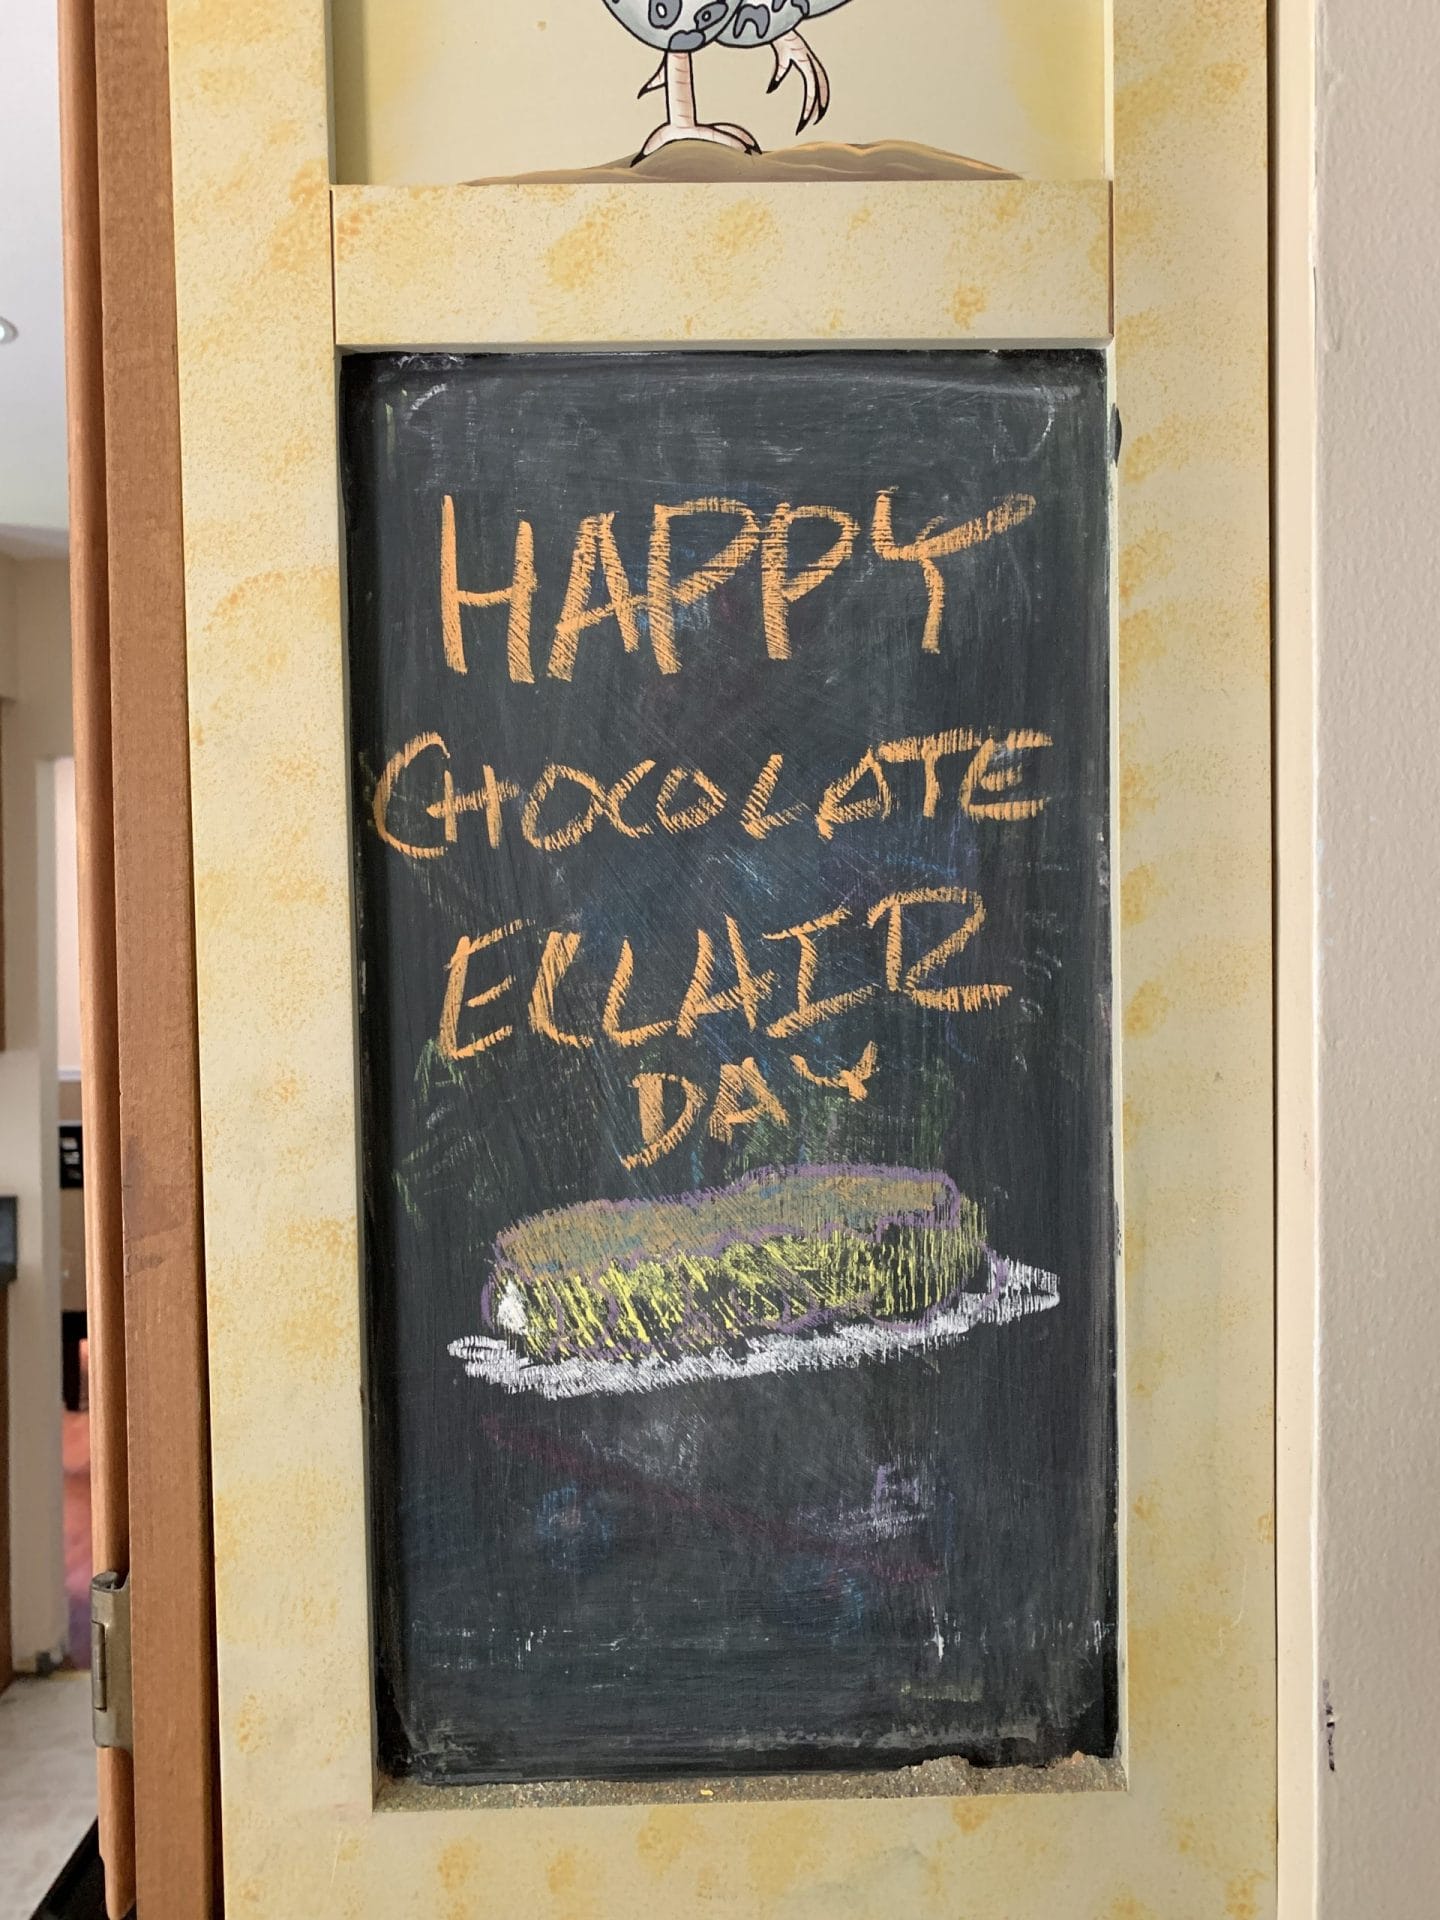 HAPPY
CHOCOLATE
ECLAIR
DAY